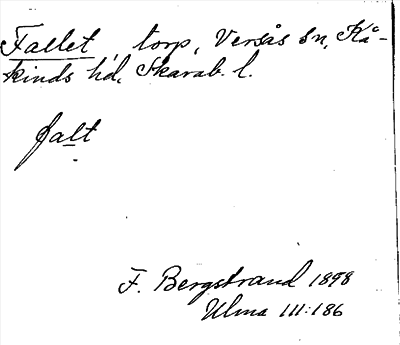 Fallet, torp, Versås sn, Kå-
kinds hd, Skarab. l.
falt
F. Bergstrand 1898
Ulma 111:186